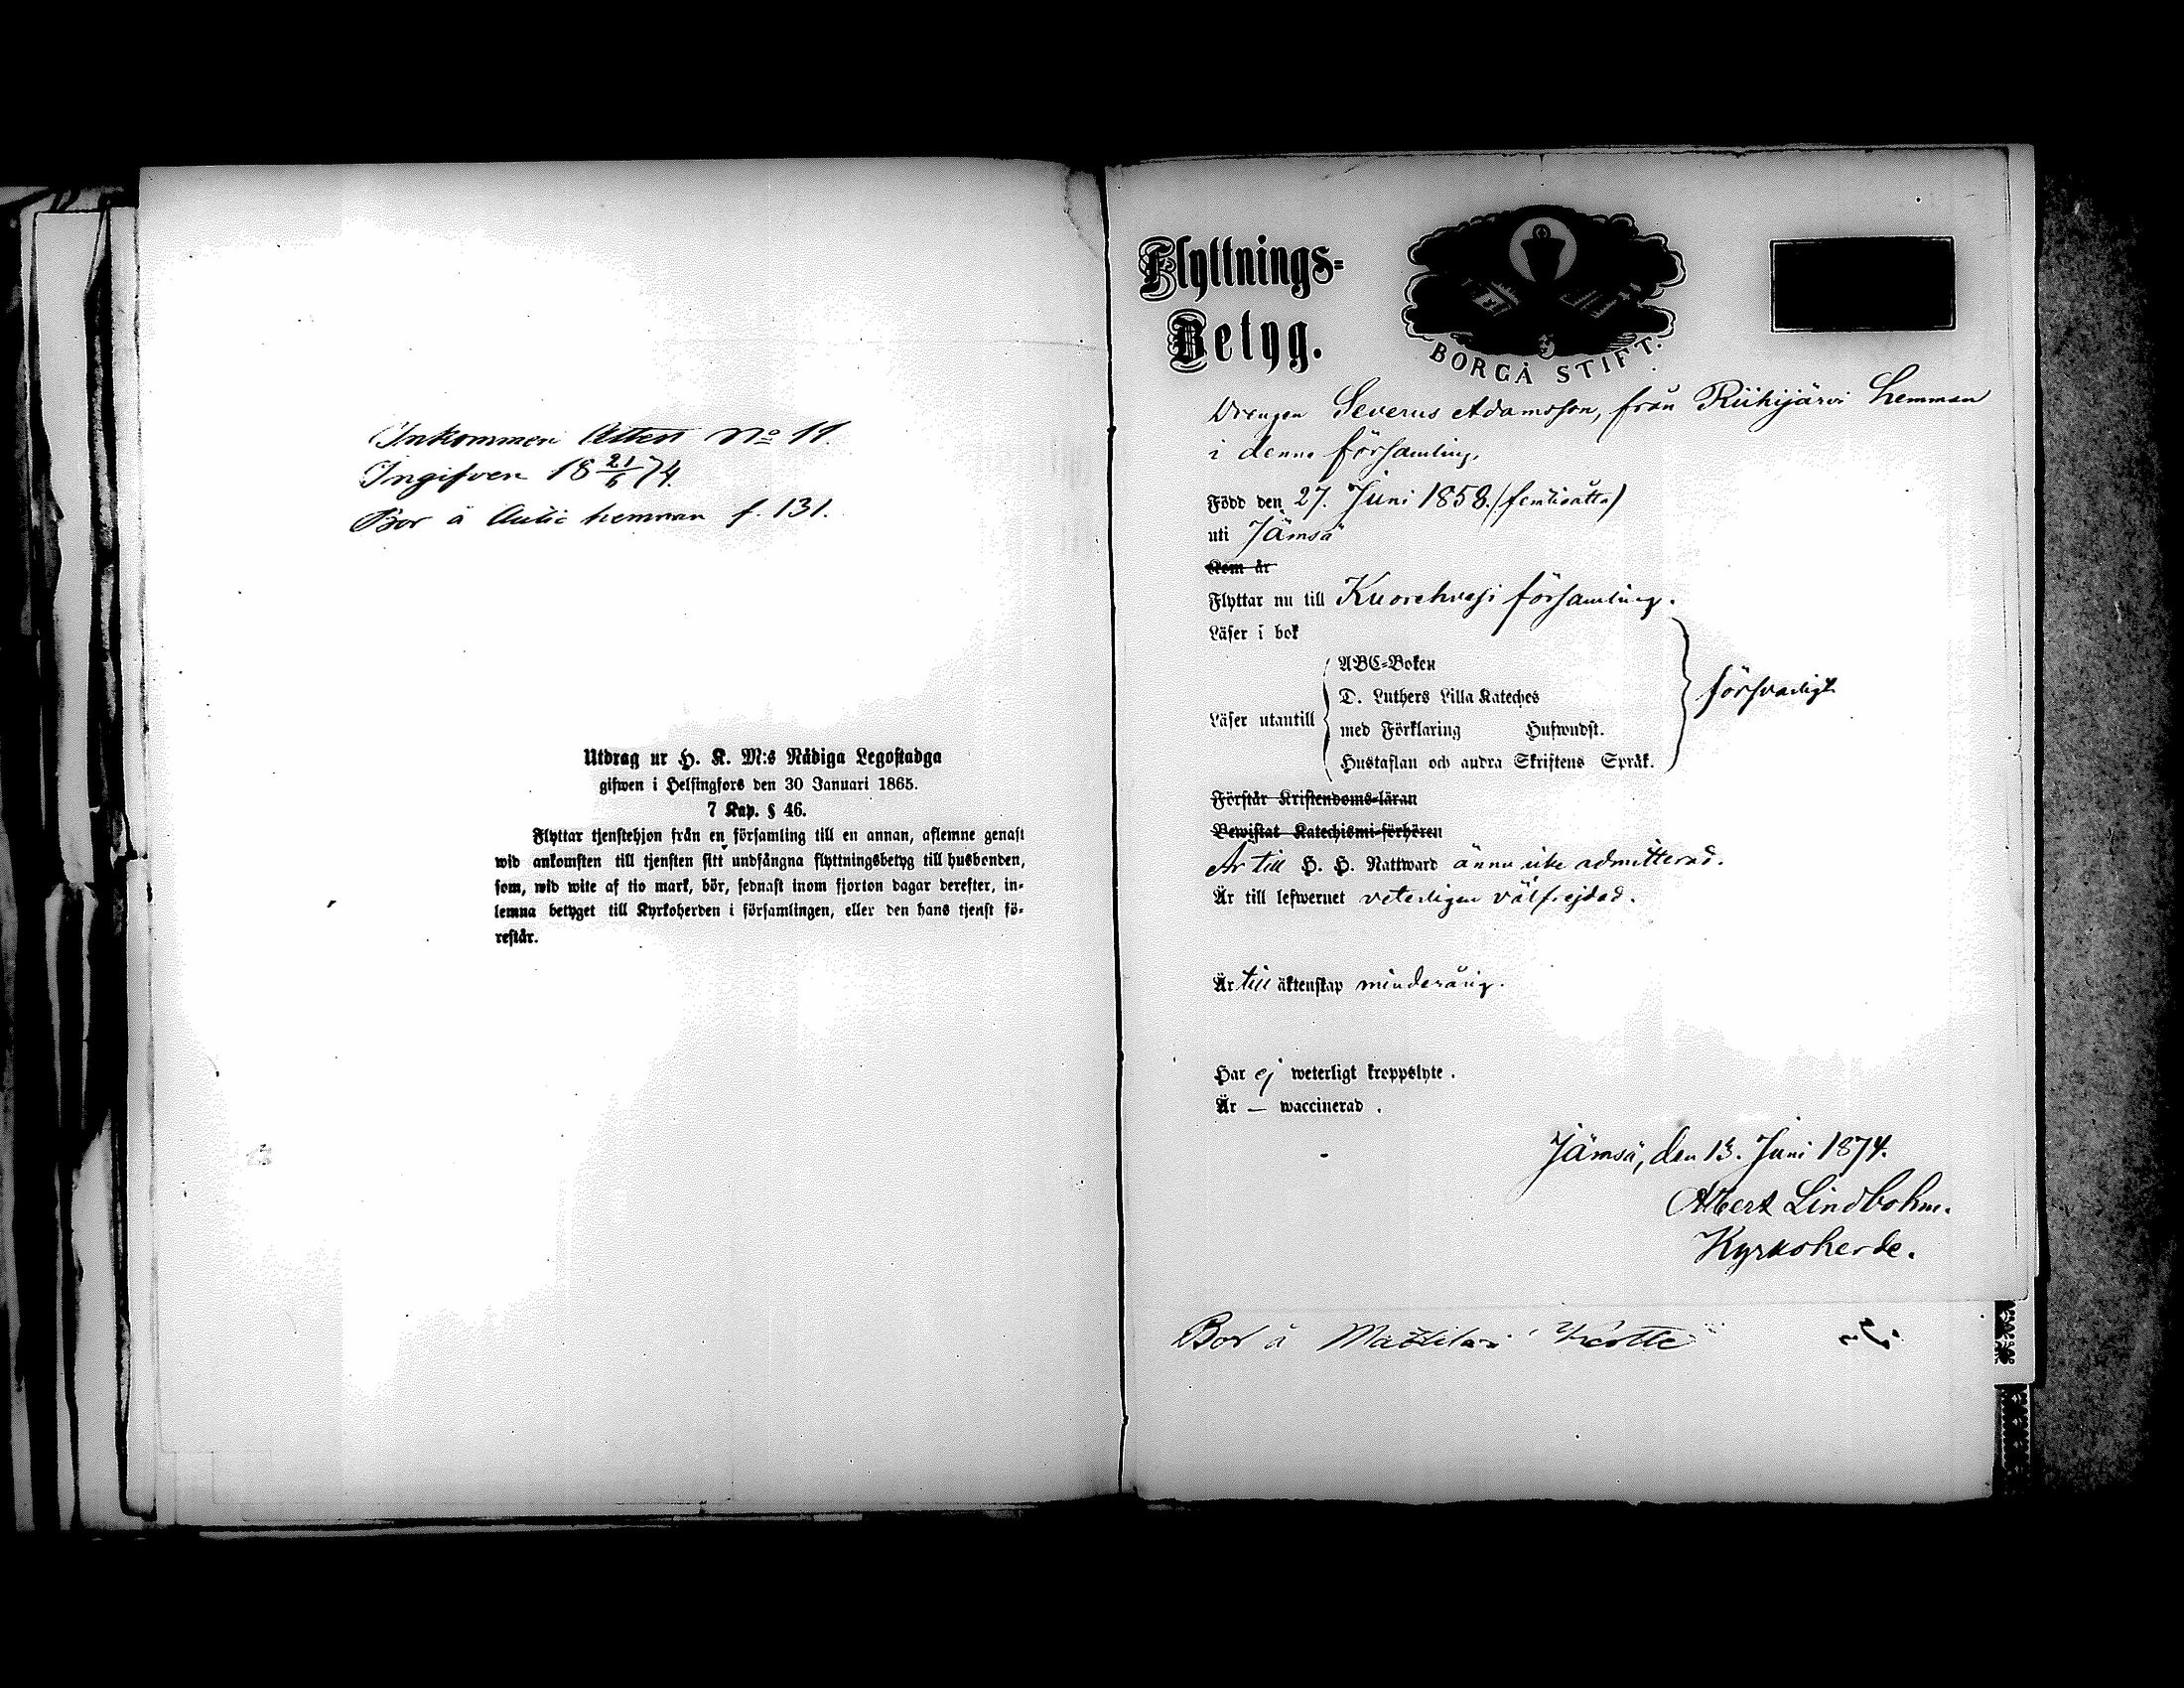 Inkommen Attest No 11.
Ingifven 18 21/6 74.
Bor å Autio hemman f. 131.
Utdrag ur H. K. M:s Nådiga Legostadga
gifwen i Helsingfors den 30 Januari 1865.
7 Kap. § 46.
Flyttar tjenstehjon från en församling till en annan, aflemne genast
wid ankomsten till tjensten sitt undfångna flyttningsbetyg till husbonden,
som, wid wite af tio mark, bör, sednast inom fjorton dagar derefter, in-
lemna betyget till Kyrkoherden i församlingen, eller den hans tjenst fö-
restår.
Flyttnings-
Betyg.
BORGÅ STIFT.
Drengen Severus Adamsson, från Riihijärvi hemman
i denna församling,
Född den 27. Juni 1858. (femtioåtta)
uti Jämsä
Kom år
Flyttar nu till Kuorehvesi församling.
Läser i bok
ABC-Boken
D. Luthers Lilla Kateches
Läser utantill
med Förklaring Hufwudst.
Hustaflan och andra Skriftens Språk.
försvarligt
Förstår Kristendoms-läran
Bewistat Katechismi-förhören
Är till H. H. Nattward ännu icke admitterad.
Är till lefwernet veterligen välfrejdad.
Är till äktenskap minderårig.
Har ej weterligt kroppslyte.
Är — waccinerad.
Jämsä, den 13. Juni 1874.
Albert Lindbohm.
Kyrkoherde.
Bor å Mattila